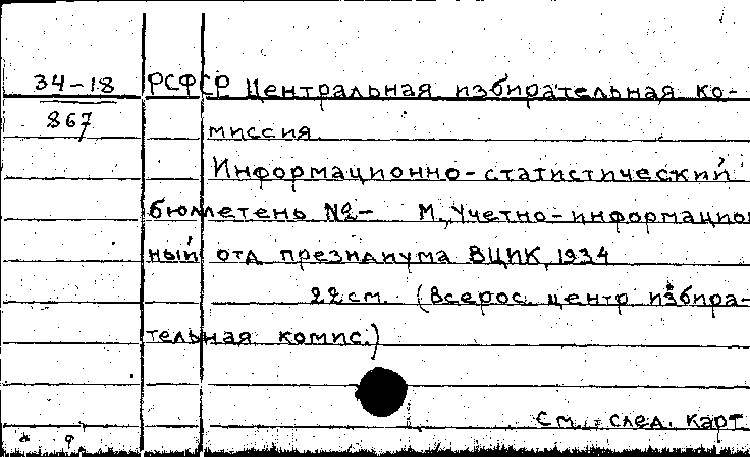 34-18 РСФСР Центральная избирательная ко-
867 миссия
Информационно-статистический
бюллетень №- М., Учетно-информацион
ный отд президиума ВЦИК, 1934
22см. (Всерос. центр избира-
тельная комис.)
См. след. карт.